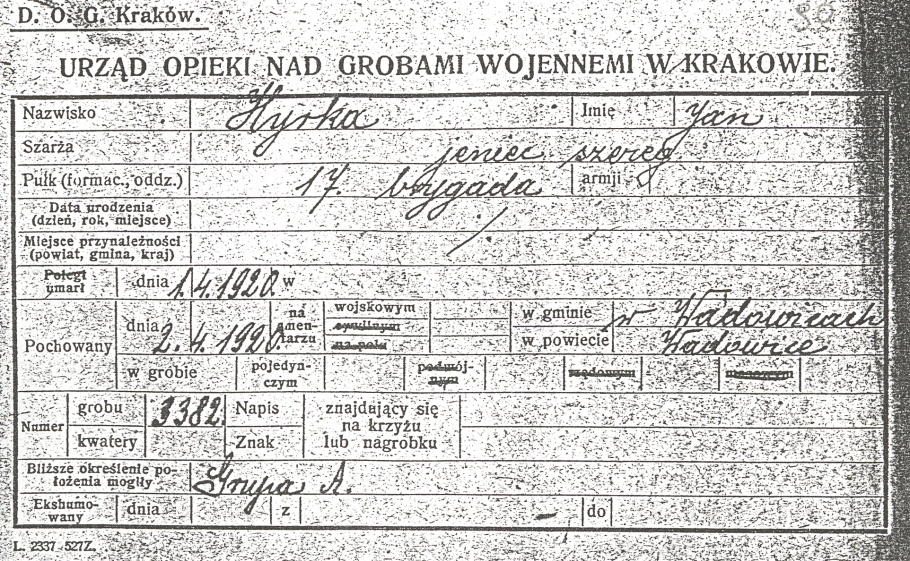 D. O. G. Kraków.
80
URZĄD OPIEKI NAD GROBAMI WOJENNEMI W KRAKOWIE.
Nazwisko Hyrka Imię Jan
Szarża jeniec szereg.
Pułk (formac., oddz.) 17. brygada armji
Data urodzenia
(dzień, rok, miejsce)
Miejsce przynależności
(powiat, gmina, kraj)
Poległ
umarł dnia 1.4.1920. w
Pochowany dnia 2.4.1920. na cmentarzu wojskowym cywilnym na polu w gminie w Wadowicach
w powiecie Wadowice
w grobie pojedyn-
czym podwój-
nym rzędowym masowym
Numer grobu 3382. Napis znajdujący się
na krzyżu
kwatery Znak lub nagrobku
Bliższe określenie po-
łożenia mogiły Grupa A.
Ekshumo-
wany dnia z – do
L. 2337 - 527Z.